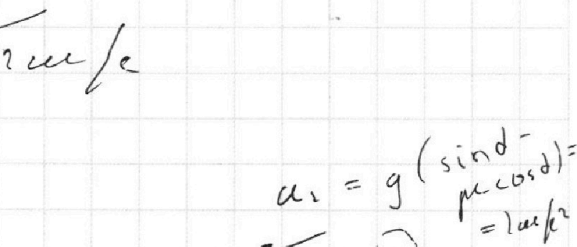 2 м/с
a₂ = g (sinα -
μ cosα) =
= 2 м/с²